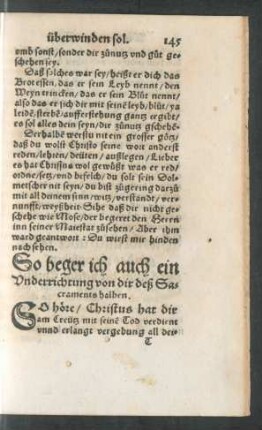 überwinden sol. 145
vmb sonst/sonder dir zünutz vnd güt ge-
schehen sey.
Daß solches war sey/heißt er dich das
Brot essen, das er sein Leyb nennt, den
Weyn trincken, das er sein Blüt nennt/
also das er sich dir mit seinē leyb/blüt/ya
leidē/sterbē/aufferstehung gantz ergibt/
es sol alles dein seyn/dir zünutz gschehē.
Derhalbē werstu nit ein grosser götz/
daß du wolst Christo seine wort anderst
reden/lehren/deüten/auslegen/Lieber
es hat Christus wol gewüßt was er red/
ordne/setz/vnd befelch/du solt sein Dol-
metscher nit seyn/du bist zügering darzü
mit all deinem sinn/witz/verstandt/ver-
nunfft/weyßheit. Sihe daß dir nicht ge-
schehe wie Mose/der begeret den Herrn
inn seiner Maiestat züsehen/Aber ihm
ward geantwort: Du wirst mir hinden
nach sehen.
So beger ich auch ein
Vnderrichtung von dir deß Sa-
craments halben.
SO höre/Christus hat dir
am Creütz mit seinē Tod verdient
vnnd erlangt vergebung all dei-
T